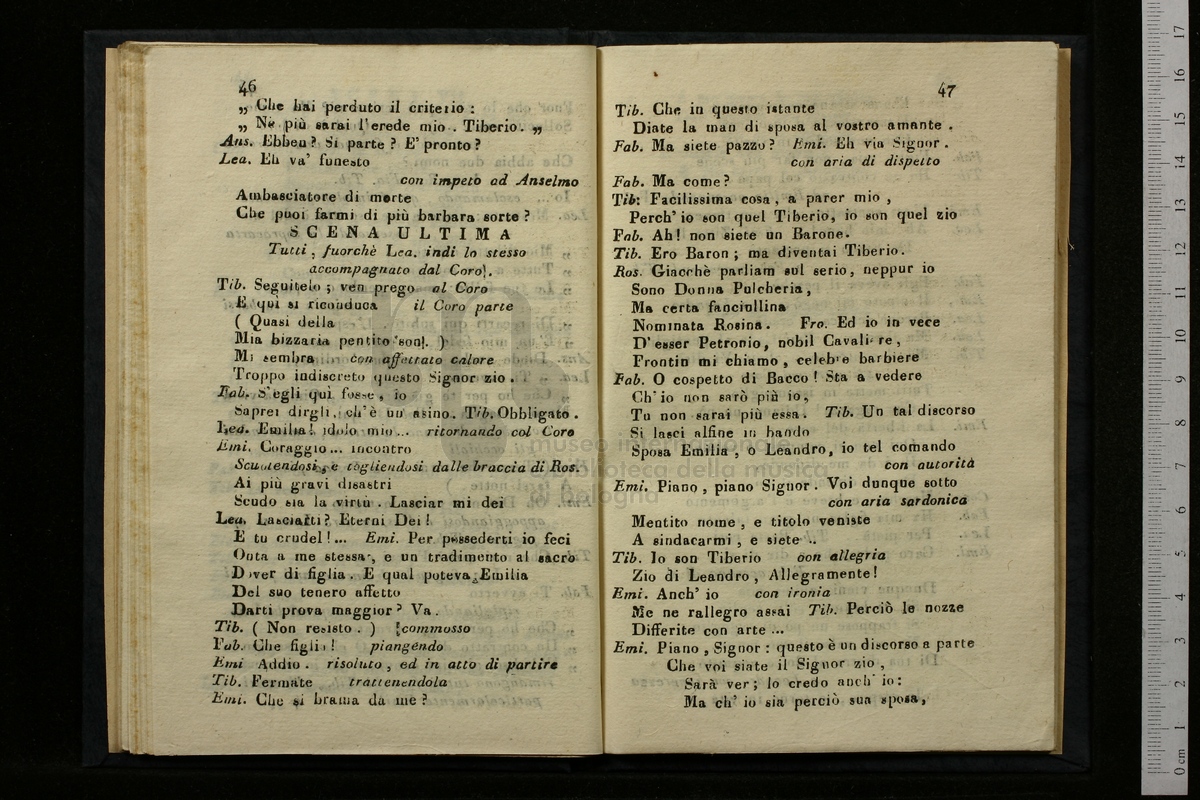 46
„ Che hai perduto il criterio :
„ Nè più sarai l'erede mio . Tiberio. „
Ans. Ebben ? Si parte ? E' pronto ?
Lea. Eh va' funesto
con impeto ad Anselmo
Ambasciatore di morte
Che puoi farmi di più barbara sorte ?
SCENA ULTIMA
Tutti , fuorchè Lea. indi lo stesso
accompagnato dal Coro.
Tib. Seguitelo ; ven prego al Coro
E quì si riconduca il Coro parte
( Quasi della
Mia bizzaria pentito son. )
Mi sembra con affettato calore
Troppo indiscreto questo Signor zio .
Fab. S'egli quì fosse , io
Saprei dirgli, ch'è un asino. Tib. Obbligato .
Lea. Emilia ! idolo mio ... ritornando col Coro
Emi. Coraggio ... incontro
Scuotendosi, e togliendosi dalle braccia di Ros.
Ai più gravi disastri
Scudo sia la virtù . Lasciar mi dei
Lea. Lasciarti ? Eterni Dei !
E tu crudel !... Emi. Per possederti io feci
Onta a me stessa , e un tradimento al sacro
Dover di figlia . E qual poteva Emilia
Del suo tenero affetto
Darti prova maggior ? Va .
Tib. ( Non resisto . ) commosso
Fab. Che figlia ! piangendo
Emi Addio . risoluto , ed in atto di partire
Tib. Fermate trattenendola
Emi. Che si brama da me ?
47
Tib. Che in questo istante
Diate la man di sposa al vostro amante .
Fab. Ma siete pazzo ? Emi. Eh via Signor .
con aria di dispetto
Fab. Ma come ?
Tib: Facilissima cosa , a parer mio ,
Perch' io son quel Tiberio, io son quel zio
Fab. Ah ! non siete un Barone.
Tib. Ero Baron ; ma diventai Tiberio.
Ros. Giacchè parliam sul serio, neppur io
Sono Donna Pulcheria,
Ma certa fanciullina
Nominata Rosina . Fro. Ed io in vece
D' esser Petronio, nobil Cavaliere,
Frontin mi chiamo , celebre barbiere
Fab. O cospetto di Bacco ! Sta a vedere
Ch' io non sarò più io,
Tu non sarai più essa . Tib. Un tal discorso
Si lasci alfine in bando
Sposa Emilia , o Leandro, io tel comando
con autorità
Emi. Piano , piano Signor . Voi dunque sotto
con aria sardonica
Mentito nome , e titolo veniste
A sindacarmi , e siete ..
Tib. Io son Tiberio con allegria
Zio di Leandro , Allegramente !
Emi. Anch' io con ironia
Me ne rallegro assai Tib. Perciò le nozze
Differite con arte ...
Emi. Piano , Signor : questo è un discorso a parte
Che voi siate il Signor zio ,
Sarà ver ; lo credo anch' io :
Ma ch' io sia perciò sua sposa,
museo internazionale
biblioteca della musica
di bologna
0 cm 1 2 3 4 5 6 7 8 9 10 11 12 13 14 15 16 17